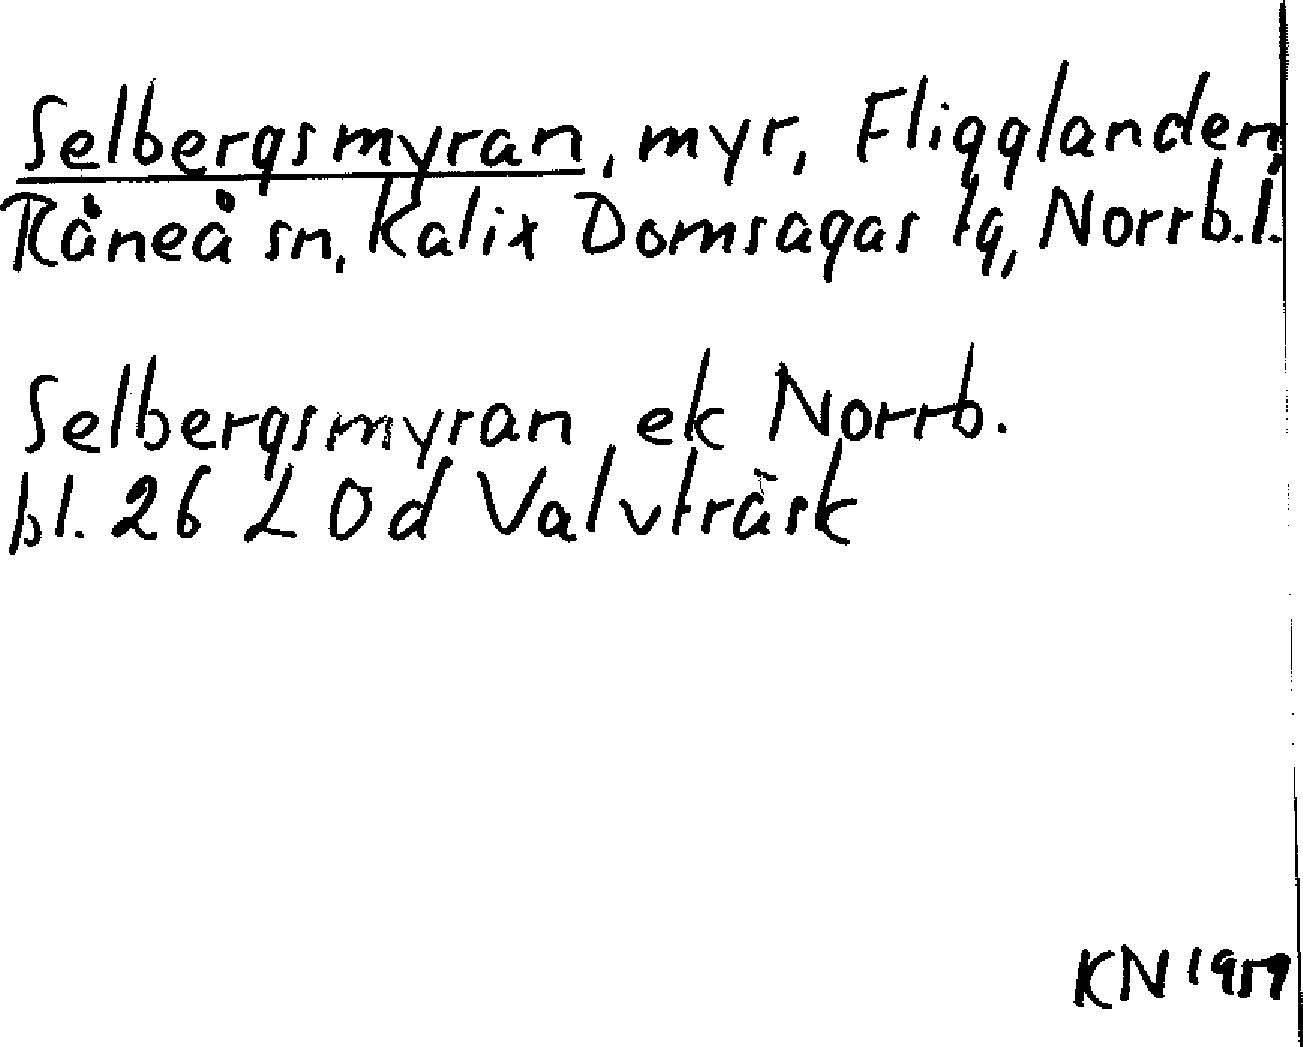 Selbergsmyran, myr, Fligglanden,
Råneå sn, Kalix Domsagas lg, Norrb.l.
Selbergsmyran ek Norrb.
bl. 26 L 0d Valvträsk
KN 1959